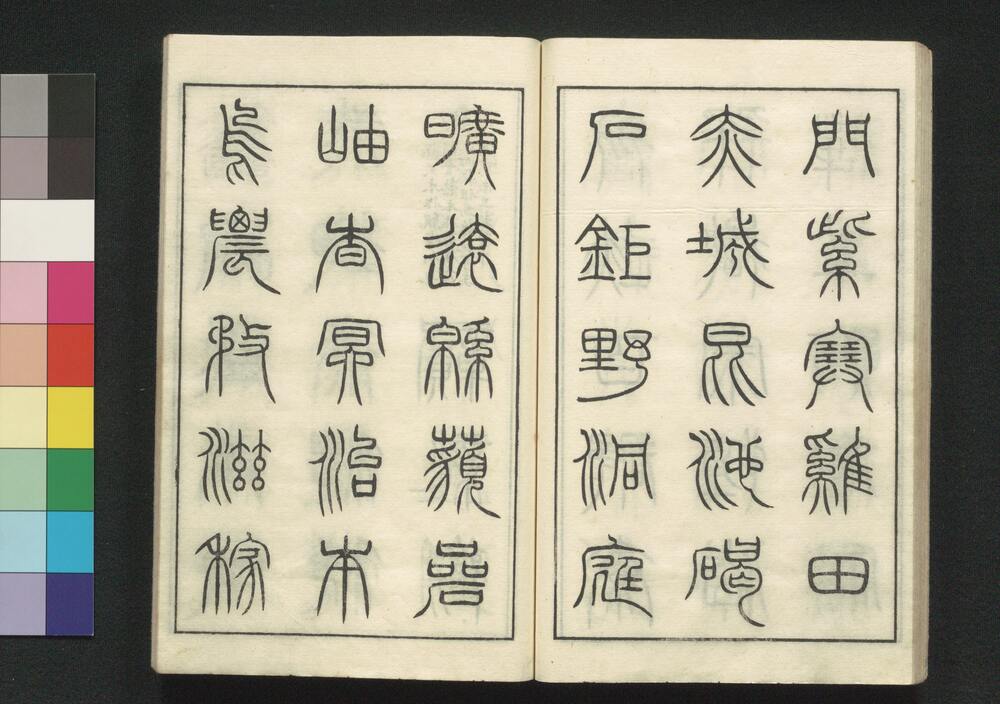 門紫塞雞田
赤城昆池碣
石鉅野洞庭
曠遠緜藐碞
岫杳冥治本
於農敄滋稼